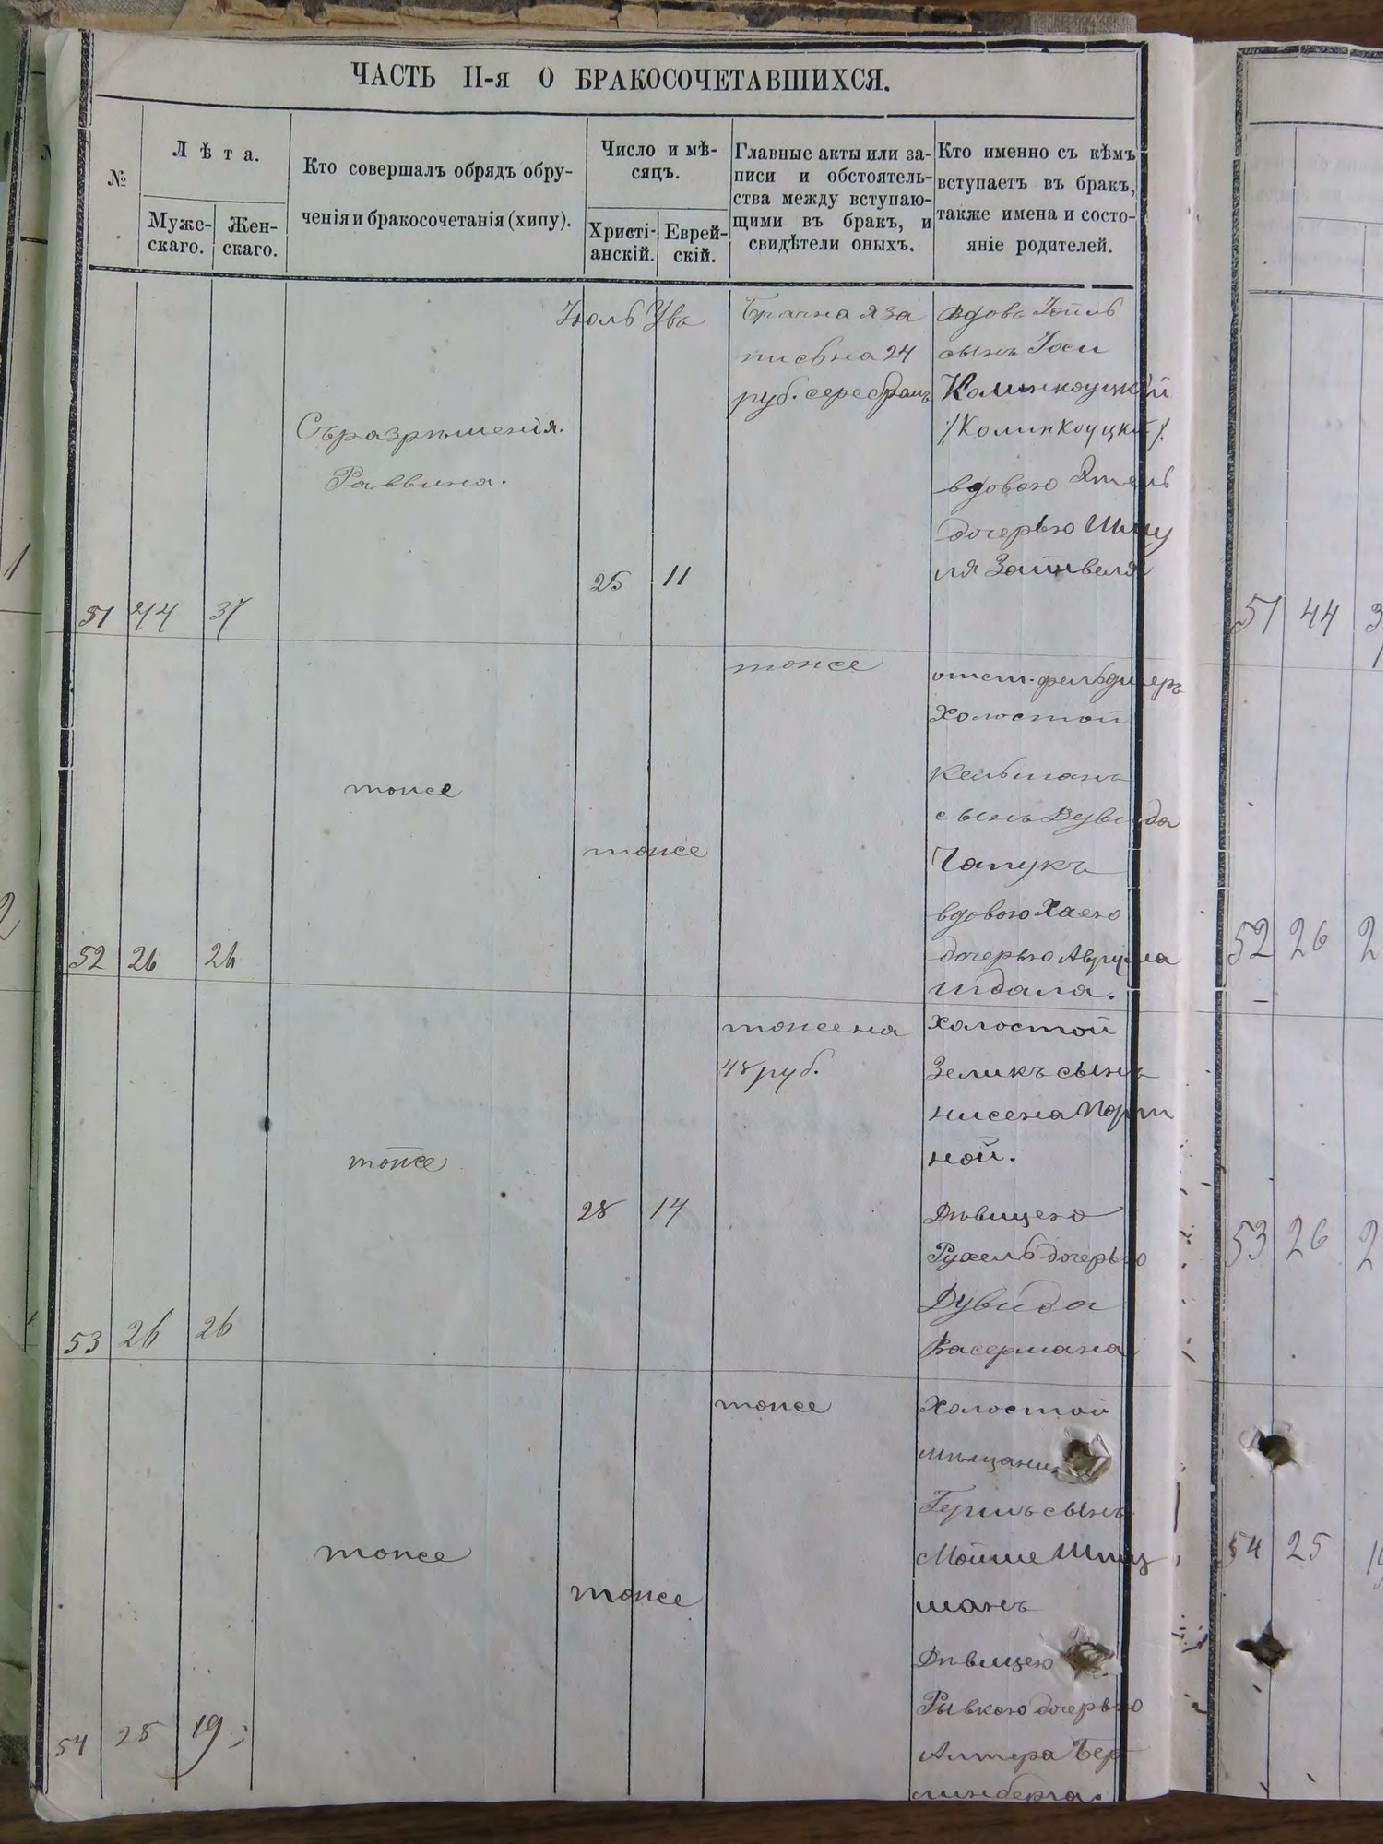 ЧАСТЬ II-я О БРАКОСОЧЕТАВШИХСЯ.
№
Лѣта.
Муже-
скаго.
Жен-
скаго.
Кто совершалъ обрядъ обру-
ченія и бракосочетанія (хипу).
Число и мѣ-
сяцъ.
Христі-
анскій.
Еврей-
скій.
Главные акты или за-
писи и обстоятель-
ства между вступаю-
щими въ бракъ, и
свидѣтели оныхъ.
Кто именно съ кѣмъ
вступаетъ въ бракъ,
также имена и состо-
яніе родителей.
51 44 37
Съ разрѣшенія.
Раввина.
Іюль
25 11
Брачная за
пись на 24
руб. серебромъ
вдовъ
сынъ Іоси
вдовою
дочерью Шму
ля
52 26 26
тоже
тоже
тоже
отст. фельдшеръ
Холостой
Кельманъ
сынъ Дувида
Чапукъ
вдовою Хаею
дочерью Аврума
Шдала.
53 26 26
тоже
28 14
тоже на
48 руб.
Холостой
Зеликъ сынъ
Нисена Порт
ной.
Дѣвицею
Рухель дочерью
Дувида
Васермана
54 25 19
тоже
тоже
тоже
Холостой
мѣщани
Гершъ сынъ
Мойше
манъ
Дѣвицею
Рывкою дочерью
Алтера Бер
линберга.
51 44 3
52 26 2
53 26 2
54 25